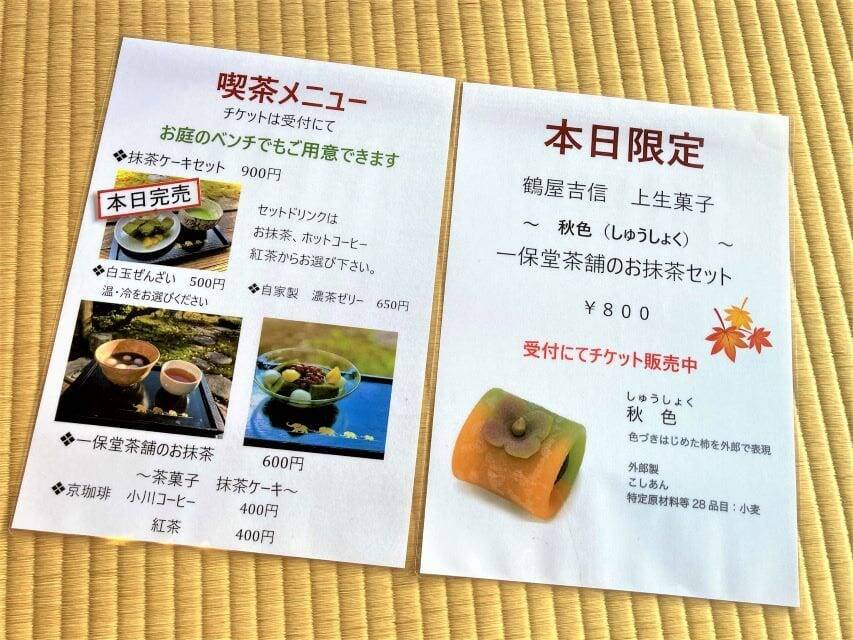 喫茶メニュー
チケットは受付にて
お庭のベンチでもご用意できます
❖抹茶ケーキセット 900円
本日完売
セットドリンクは
お抹茶、ホットコーヒー
紅茶からお選び下さい。
❖白玉ぜんざい 500円
温・冷をお選びください
❖自家製 濃茶ゼリー 650円
❖一保堂茶舗のお抹茶 600円
～茶菓子 抹茶ケーキ～
❖京珈琲 小川コーヒー 400円
紅茶 400円
本日限定
鶴屋吉信 上生菓子
～ 秋色（しゅうしょく） ～
一保堂茶舗のお抹茶セット
￥８００
受付にてチケット販売中
しゅうしょく
秋 色
色づきはじめた柿を外郎で表現
外郎製
こしあん
特定原材料等28品目：小麦